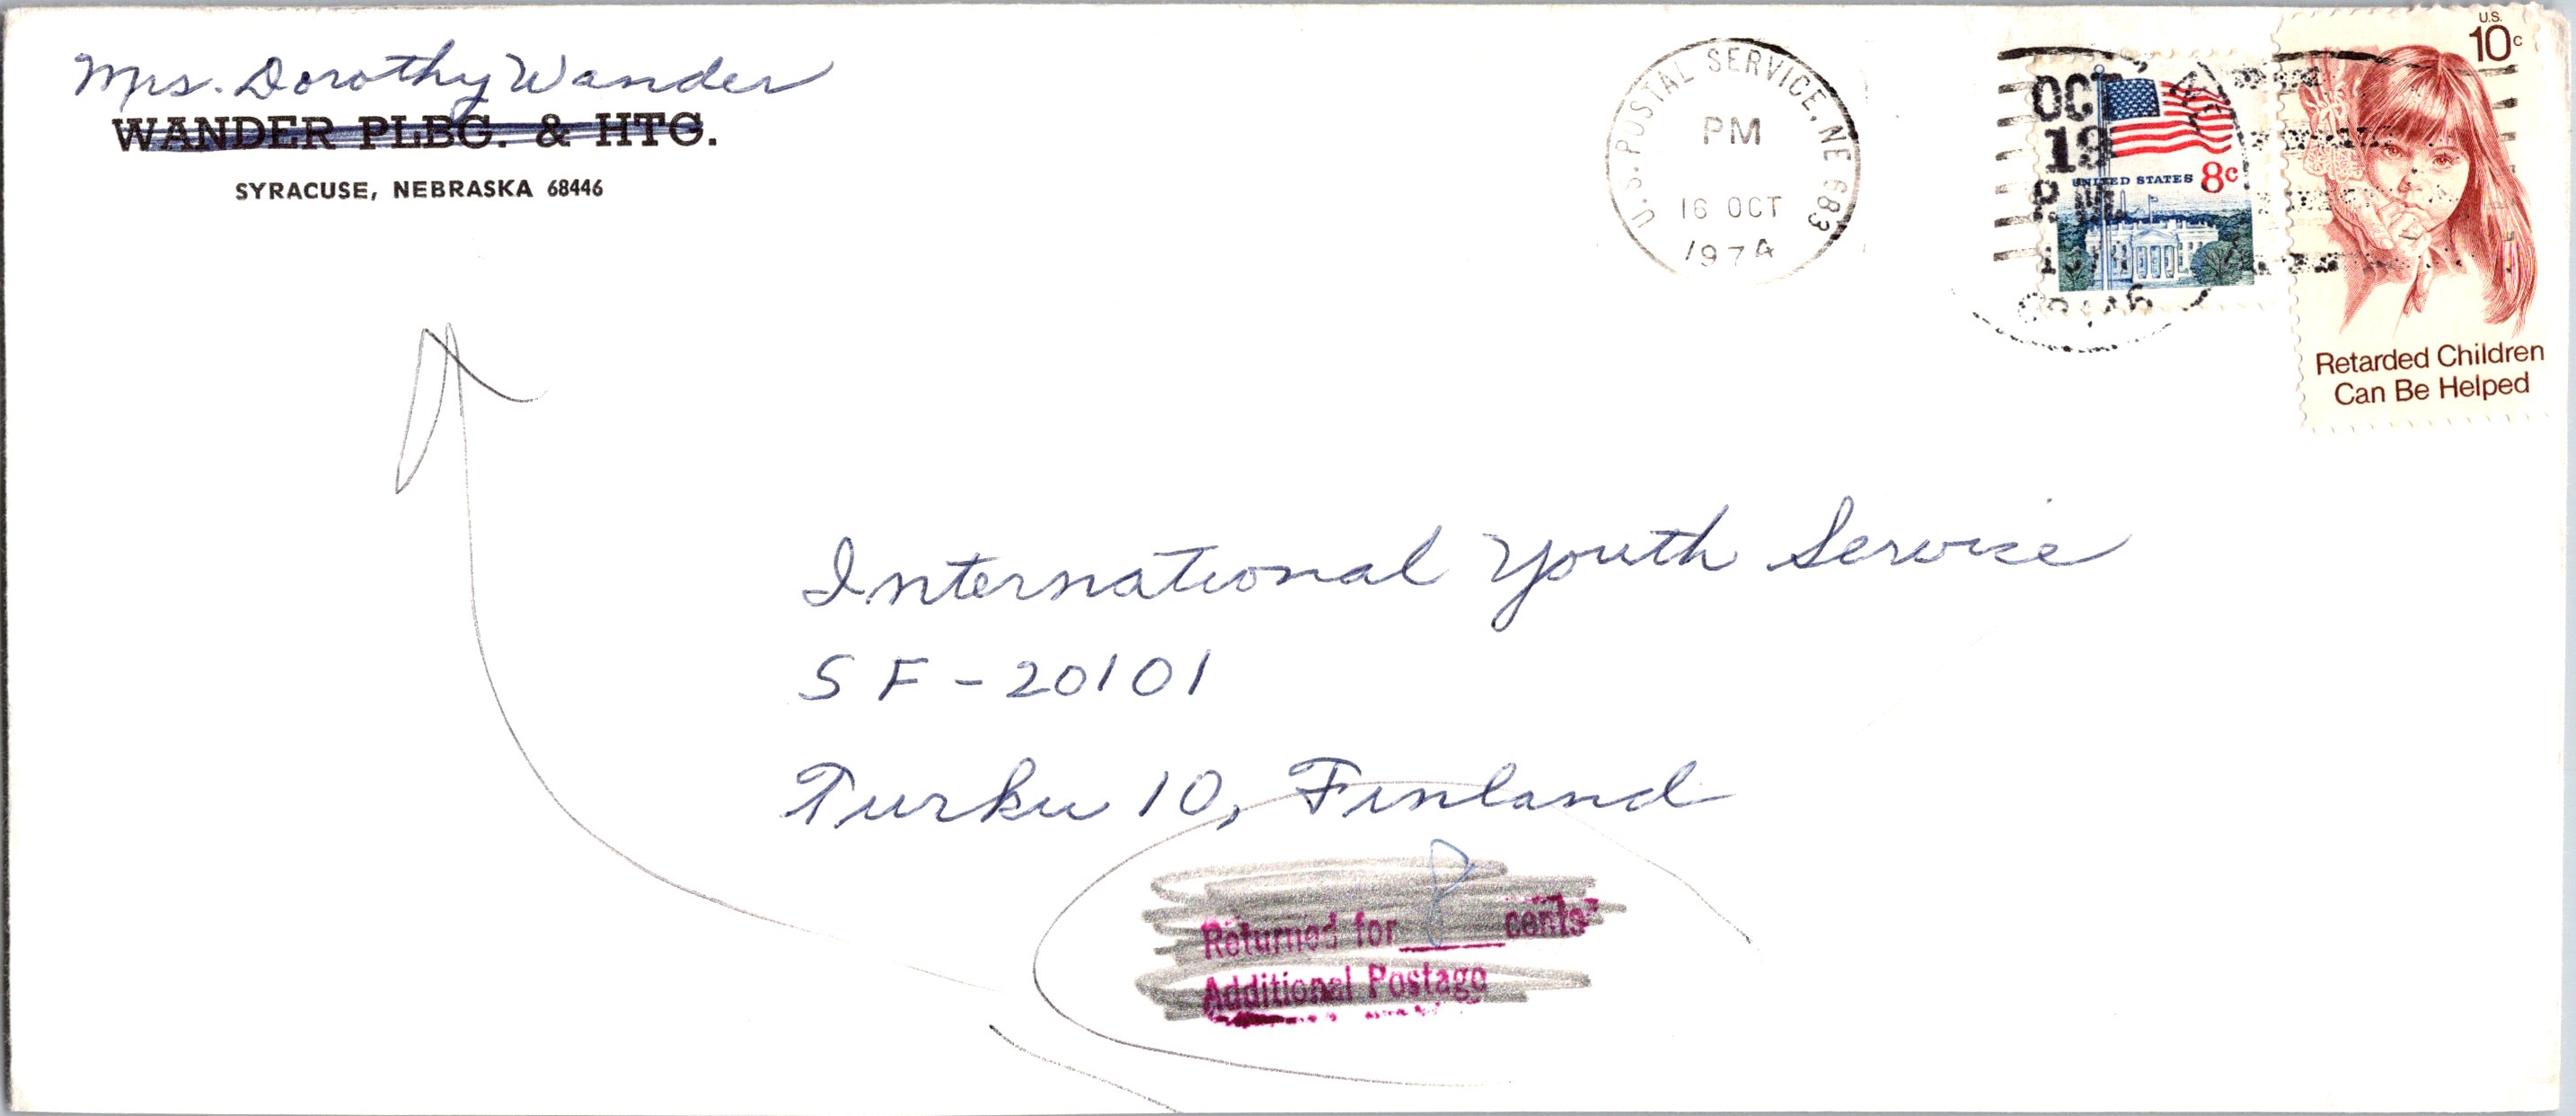 Mrs. Dorothy Wander
WANDER PLBG. & HTG.
SYRACUSE, NEBRASKA 68446
U.S. POSTAL SERVICE, NE 683
PM
16 OCT
1974
OCT
19
P.M.
UNITED STATES 8c
U.S.
10c
Retarded Children
Can Be Helped
International Youth Service
SF-20101
Turku 10, Finland
Returned for 8 cents
Additional Postage